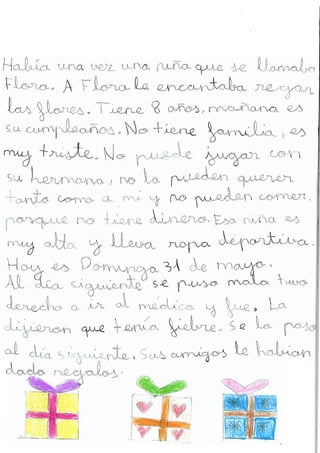 Había una vez una niña que se llamaba
Flora. A Flora le encantaba regar
las flores. Tiene 8 años, mañana es
su cumpleaños. No tiene familia, es
muy triste. No puede jugar con
su hermana, no la pueden querer
tanto como a mi y no pueden comer,
porque no tiene dinero. Esa niña es
muy alta y lleva ropa deportiva.
Hoy es Domingo 31 de mayo.
Al día siguiente se puso mala tuvo
derecho a ir al médico y fue. La
dijieron que tenía fiebre. Se la pasó
al día siguiente. Sus amigos le habían
dado regalos.